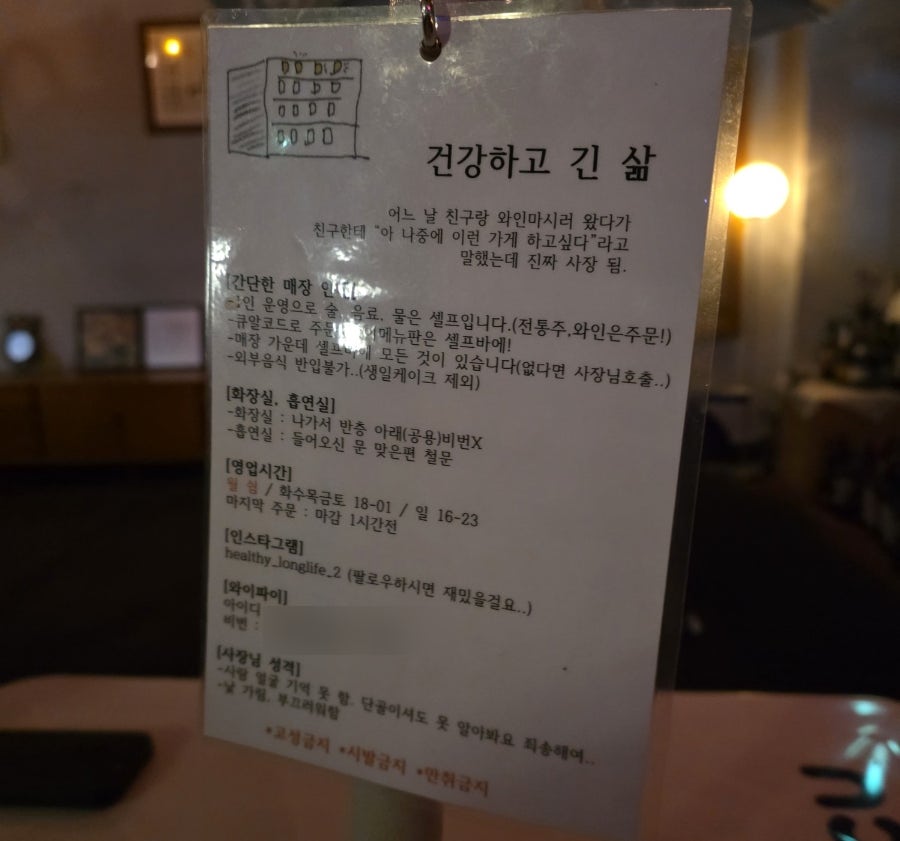 건강하고 긴 삶
어느 날 친구랑 와인마시러 왔다가
친구한테 “아 나중에 이런 가게 하고싶다”라고
말했는데 진짜 사장 됨.
[간단한 매장
-1인 운영으로 술, 음료, 물은 셀프입니다.(전통주,와인은주문!)
-큐알코드로 메뉴판은 셀프바에!
-매장 가운데 셀프바에 모든 것이 있습니다(없다면 사장님호출..)
-외부음식 반입불가..(생일케이크 제외)
[화장실, 흡연실]
-화장실 : 나가서 반층 아래(공용)비번X
-흡연실 : 들어오신 문 맞은편 철문
[영업시간]
월 휴 / 화수목금토 18-01 / 일 16-23
마지막 주문 : 마감 1시간전
[인스타그램]
healthy_longlife_2 (팔로우하시면 재밌을걸요..)
[와이파이]
아이디
비번 :
[사장님 성격]
-사람 얼굴 기억 못 함. 단골이셔도 못 알아봐요 죄송해여..
-낯 가림, 부끄러워함
*고성금지 *시발금지 *만취금지